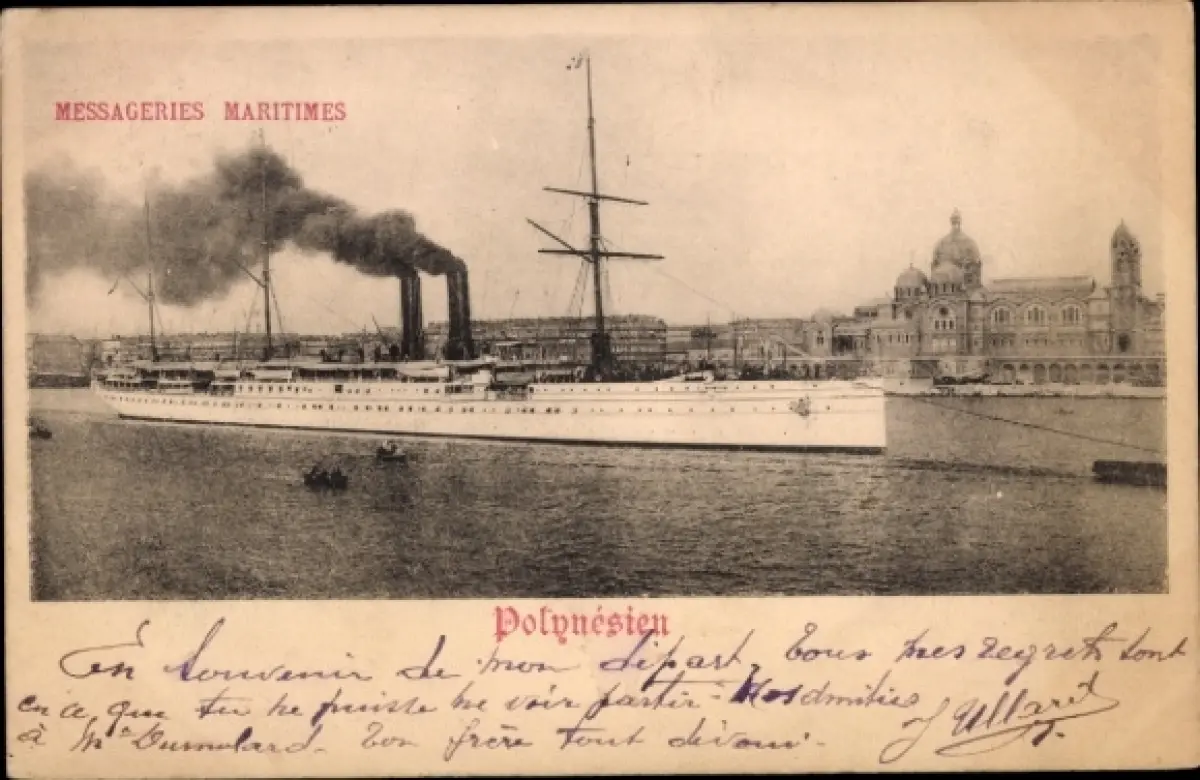 MESSAGERIES MARITIMES
Polynésien
En souvenir de mon départ, Tous mes regrets sont
en ce que tu ne puisse me voir partir -
à Mr Dumolard. Ton frère tout dévoué.